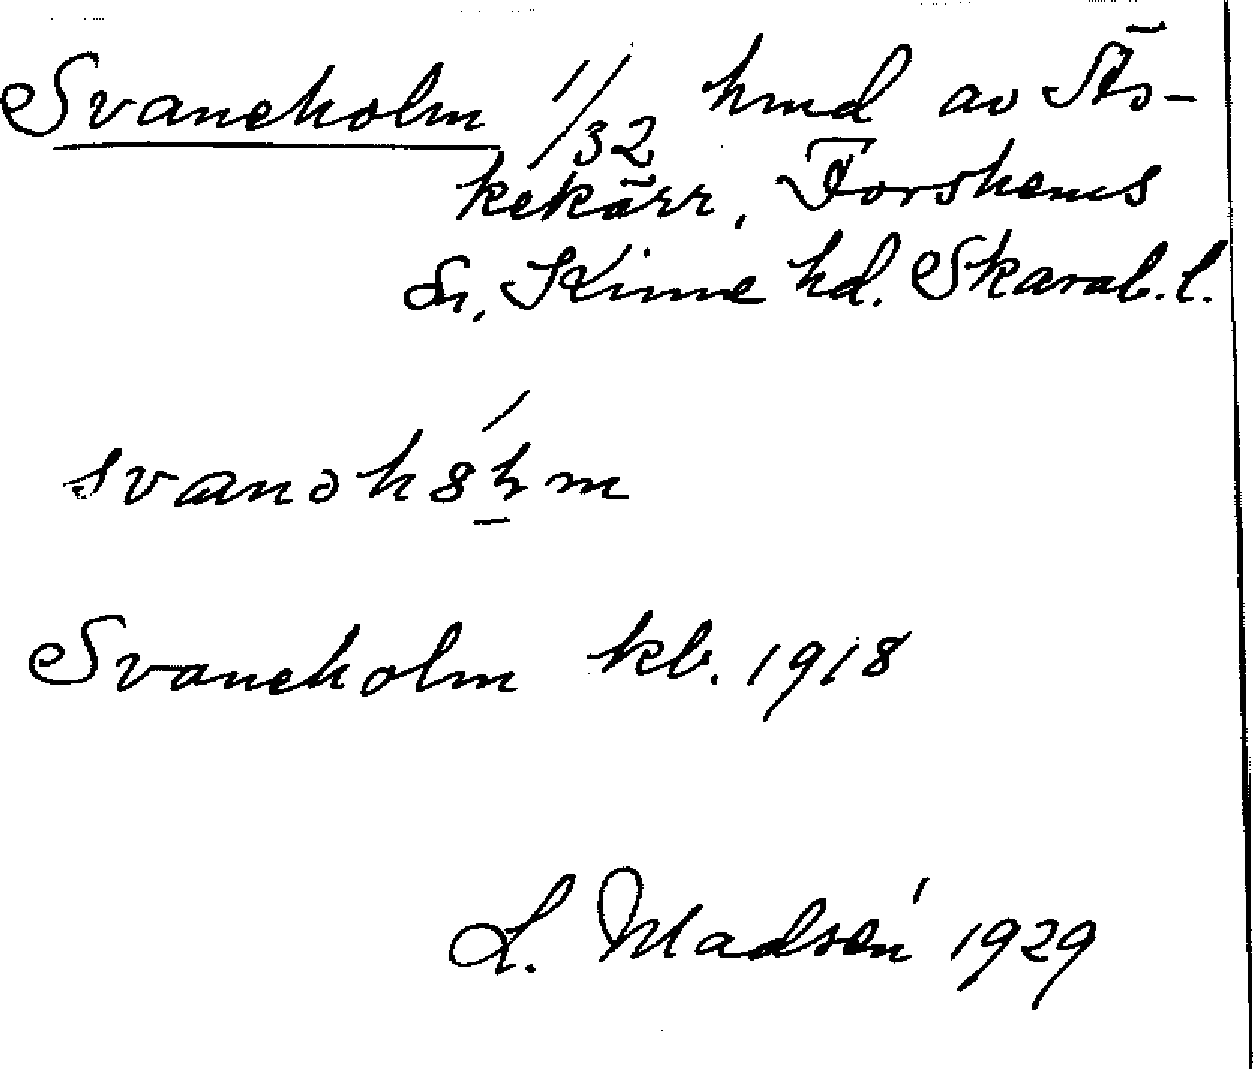 Svaneholm 1/32 hmd av Äs-
kekärr, Forshems
sn, Kinne hd. Skarab. l.
svanəhȣ́ꞎm
Svaneholm kb. 1918
L. Madsén 1929